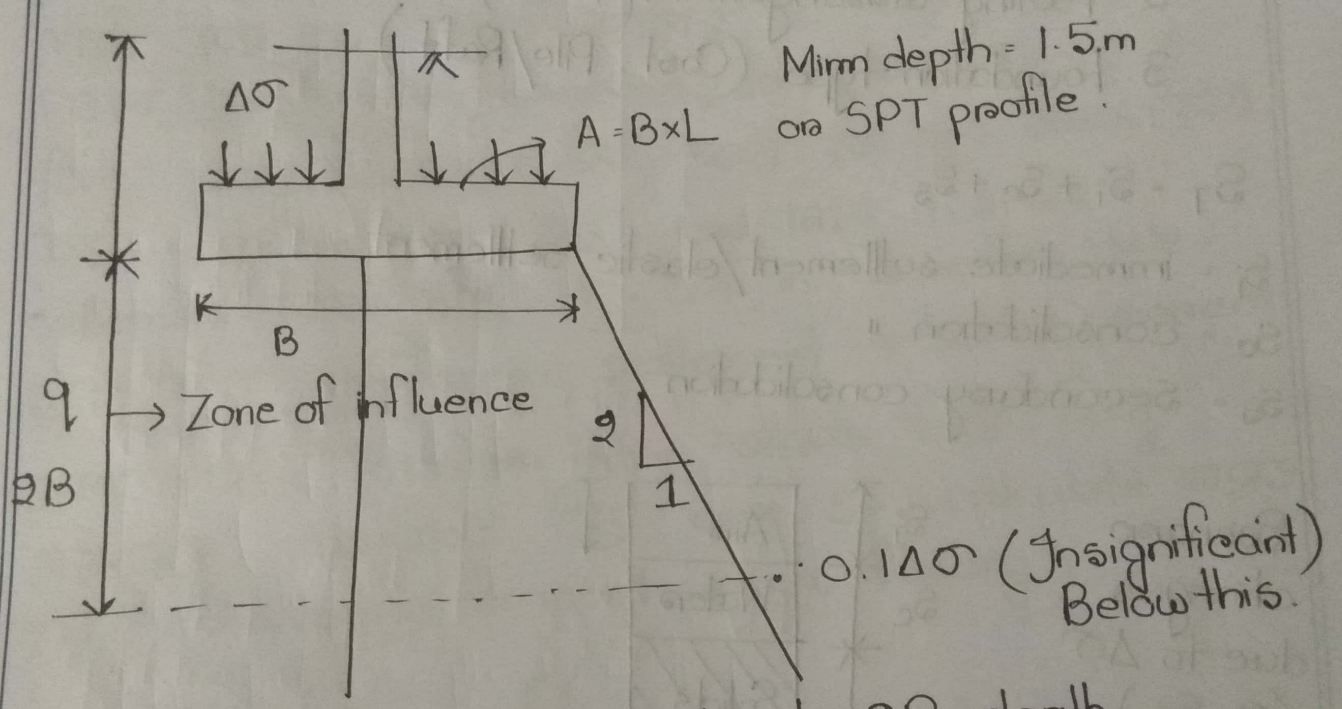 Minm depth = 1.5m
or SPT profile.
Δσ
A = B×L
B
q
Zone of influence
2B
2
1
0.1Δσ (Insignificant)
Below this.
depth